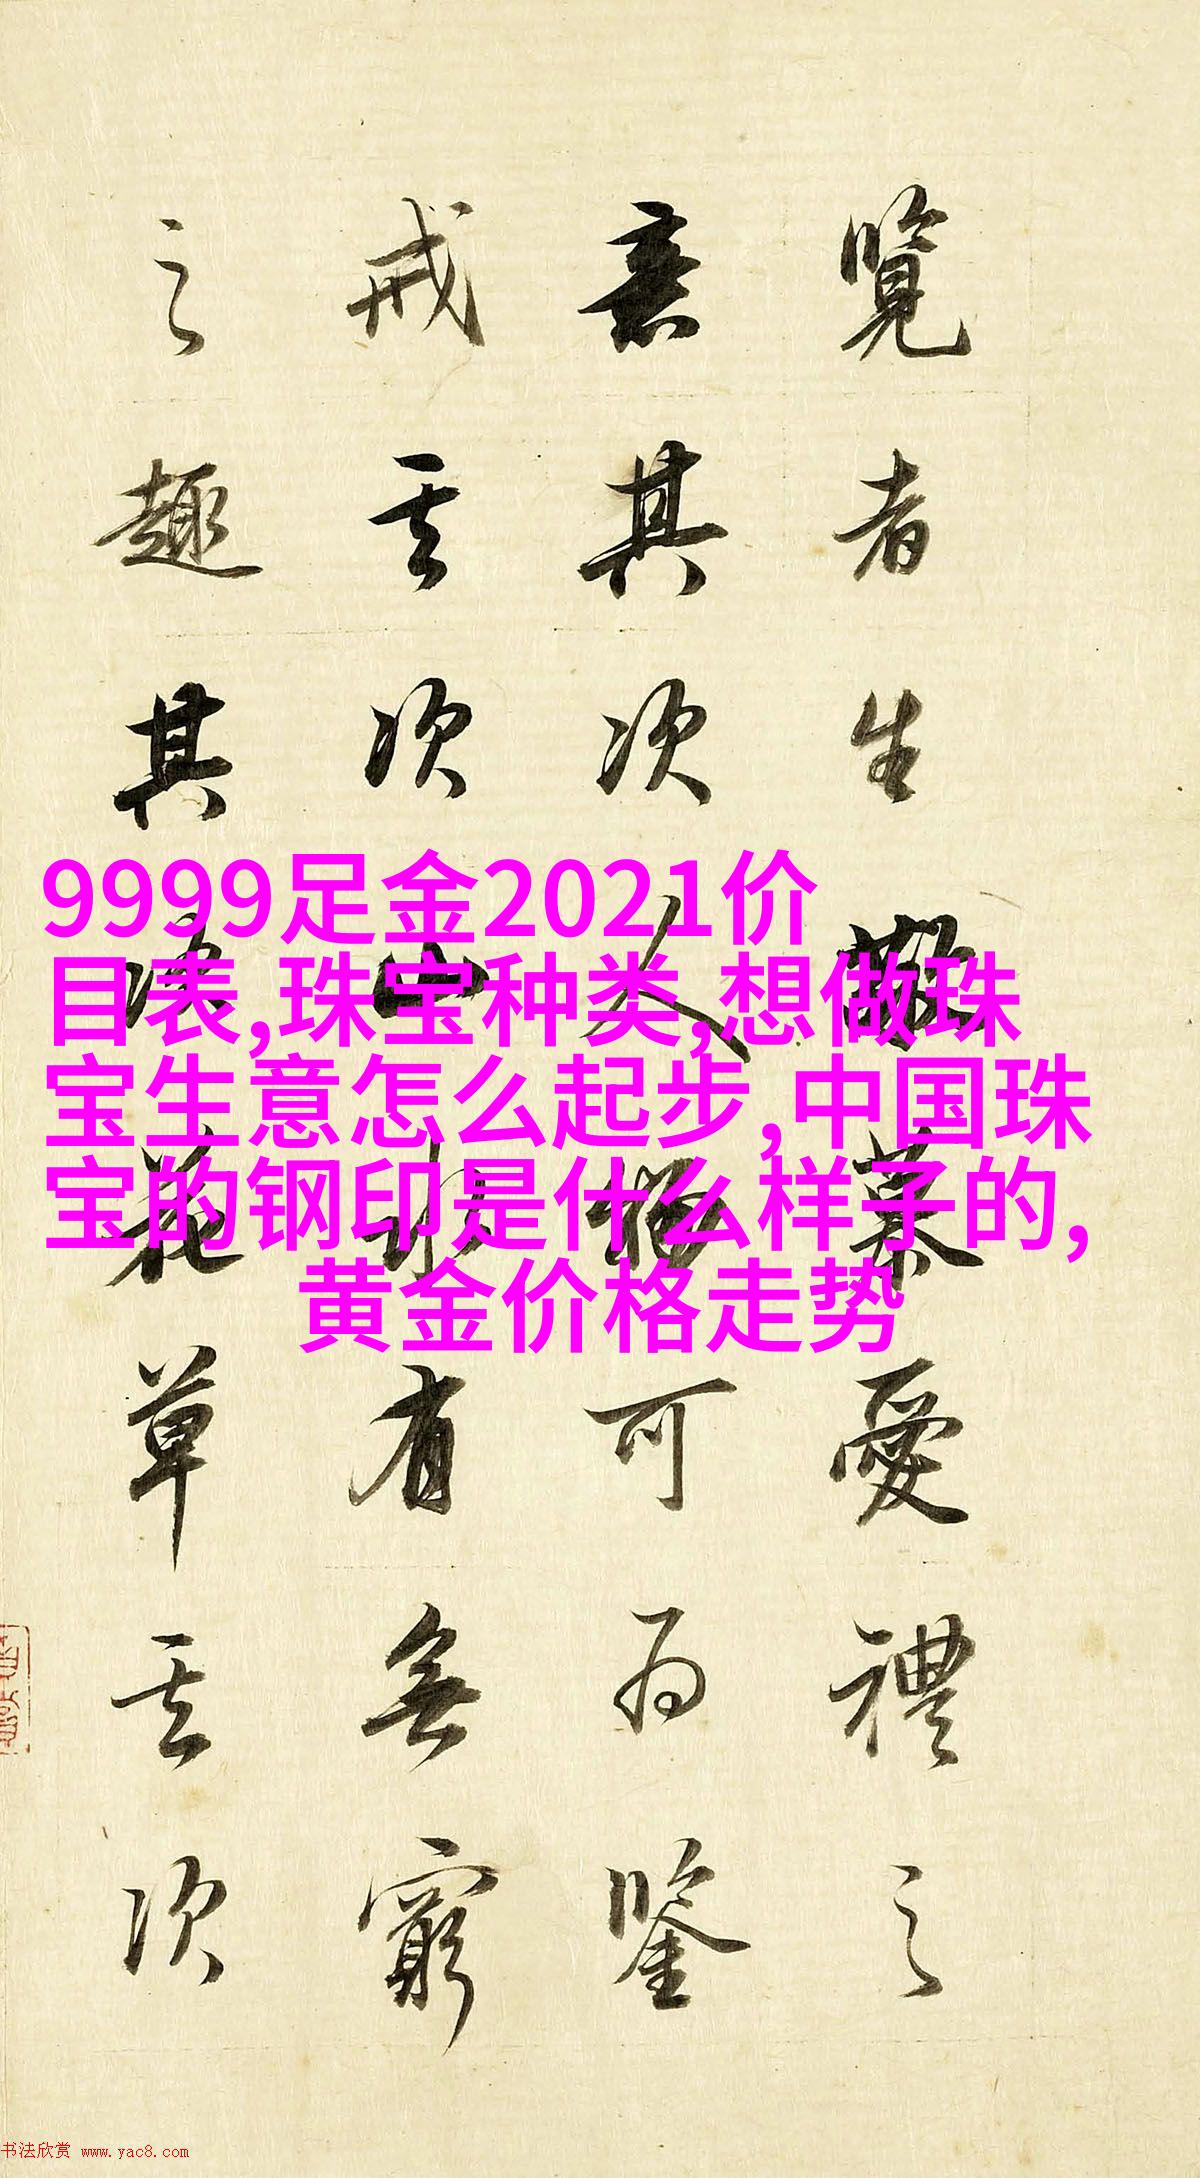 覽者生敬慕愛禮之
意其次人物可為鑒
戒其次山水有無窮
之趣其次花草其次
9999足金2021价
目表,珠宝种类,想做珠
宝生意怎么起步,中国珠
宝的钢印是什么样子的,
黄金价格走势
书法欣赏 www.yac8.com